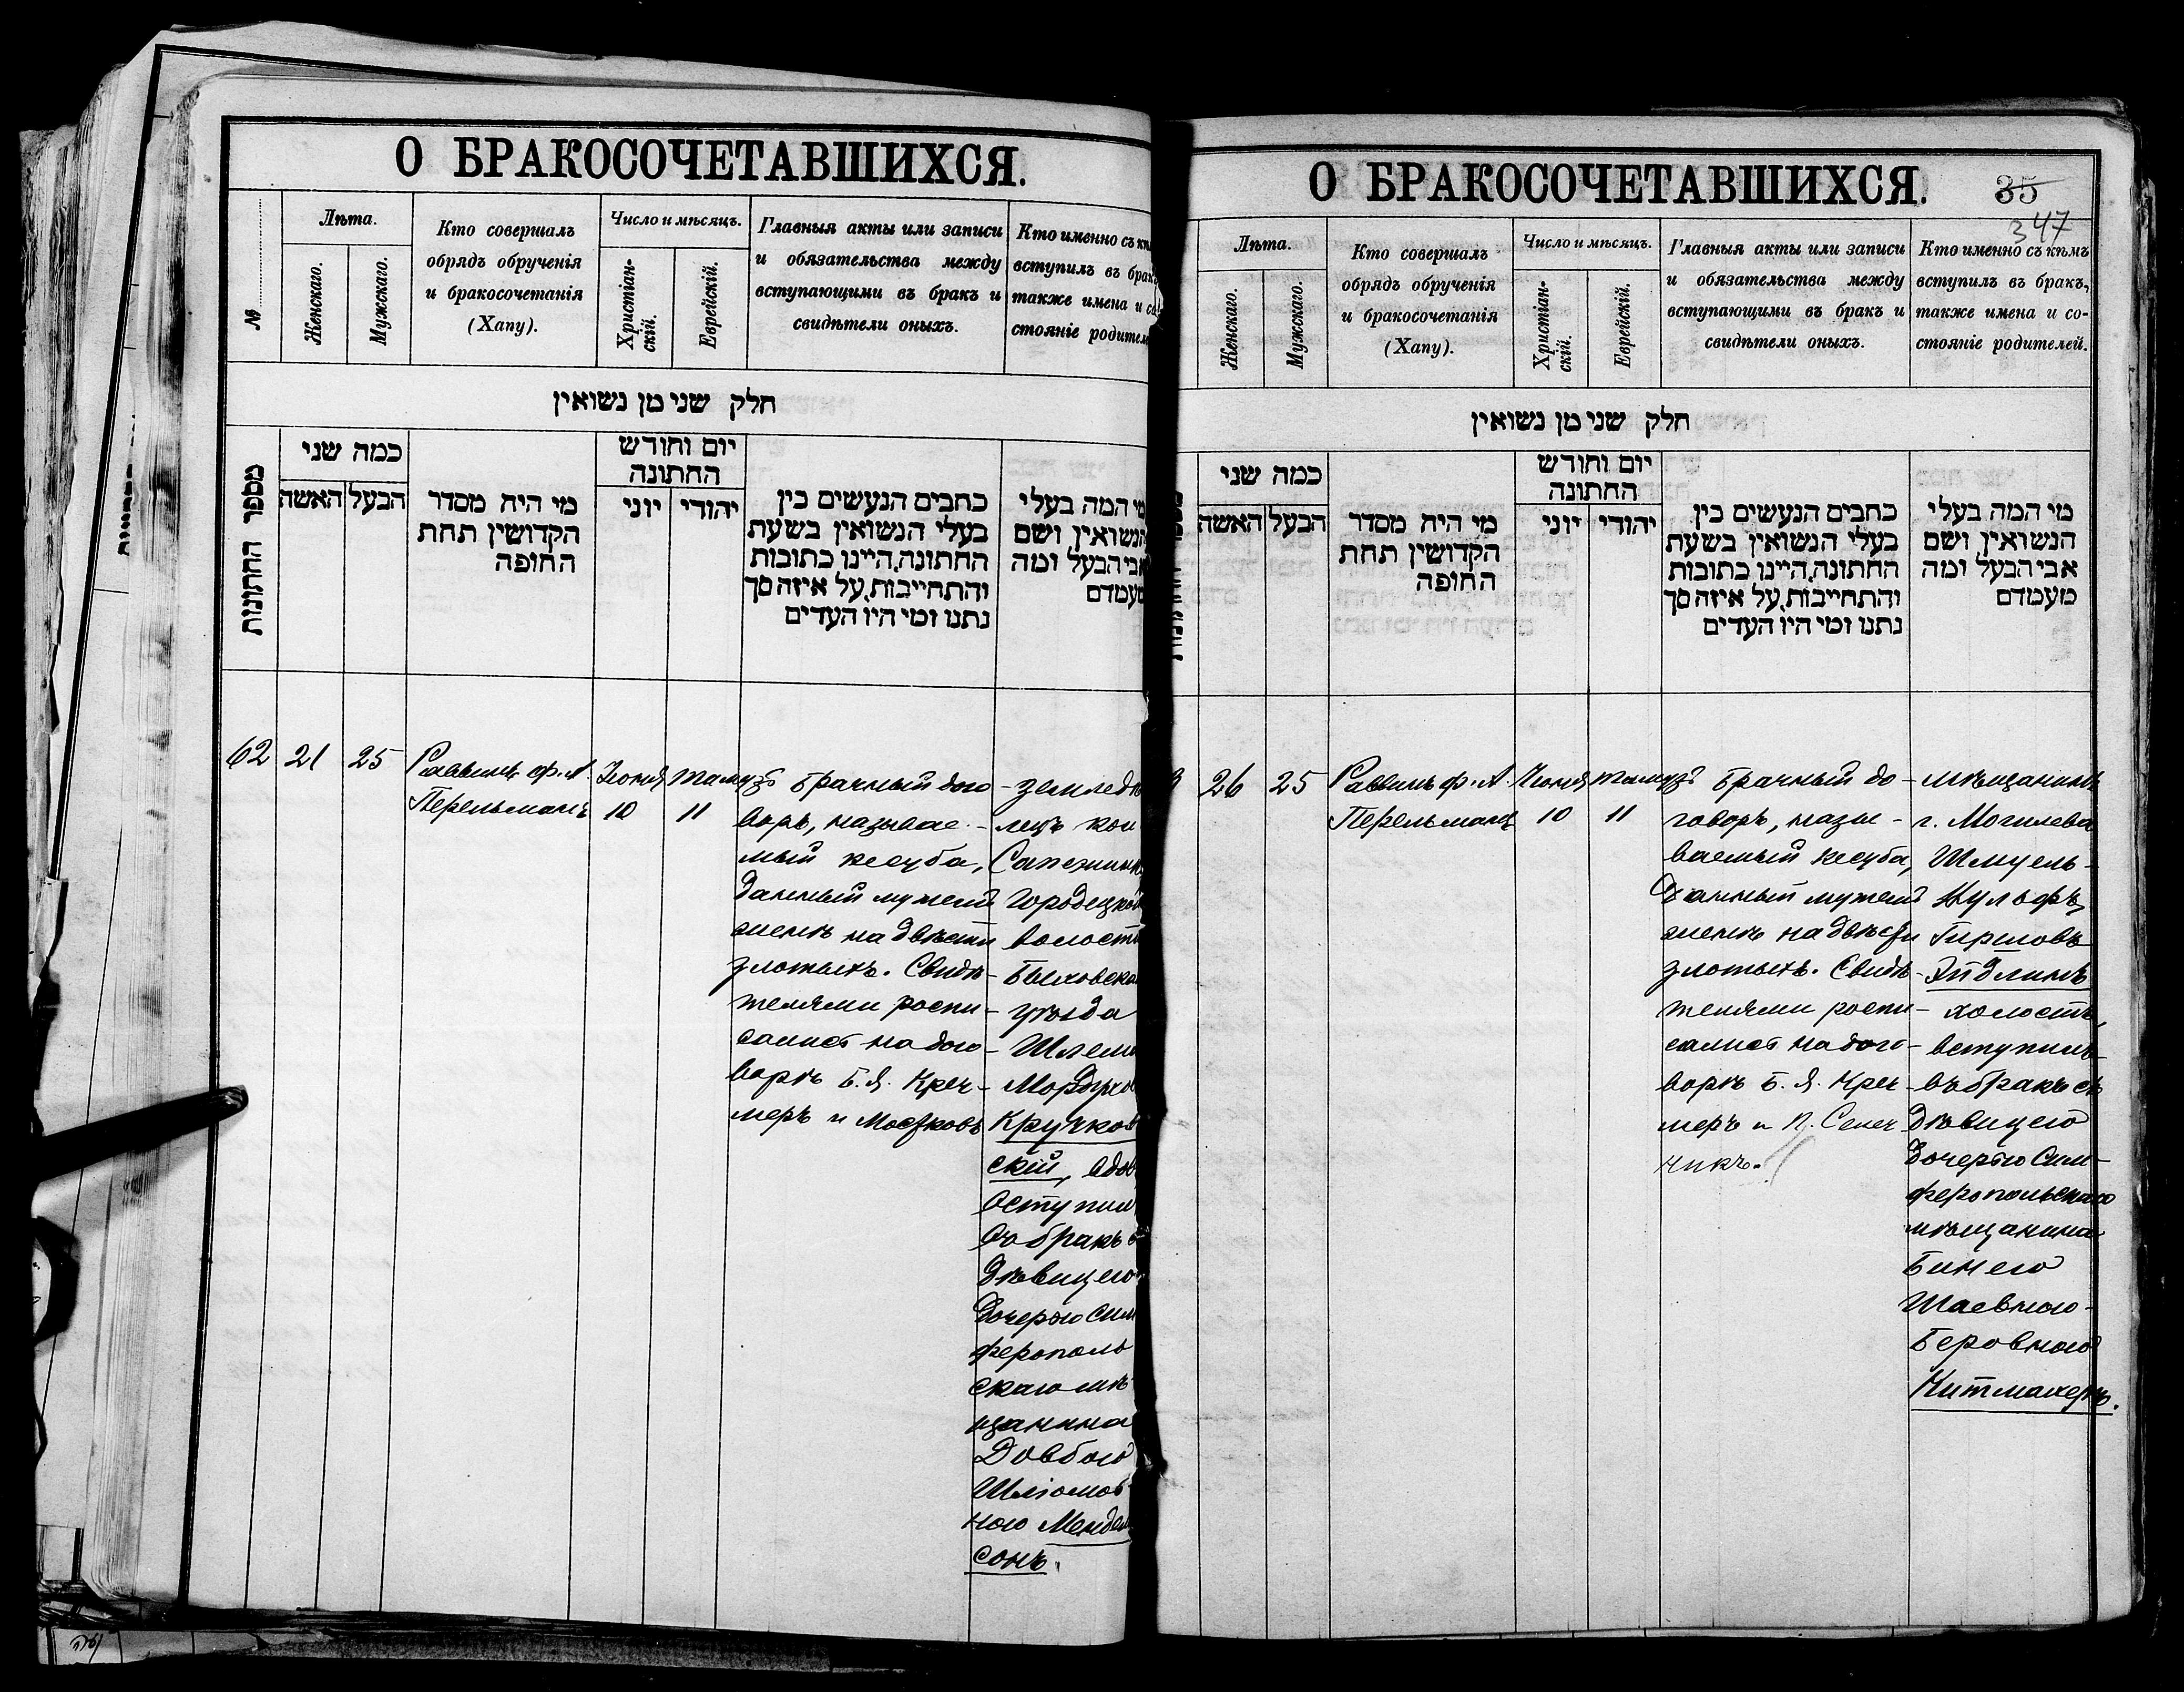 О БРАКОСОЧЕТАВШИХСЯ.
№
Лѣта.
Женскаго.
Мужскаго.
Кто совершалъ
обрядъ обрученія
и бракосочетанія
(Хапу).
Число и мѣсяцъ.
Христіан-
скій.
Еврейскій.
Главныя акты или записи
и обязательства между
вступающими въ бракъ и
свидѣтели оныхъ.
Кто именно съ
вступилъ въ брак
также имена и со
стояніе родител
חלק שני מן נשואין
מספר החתונות
כמה שני
האשה
הבעל
מי היה מסדר
הקדושין תחת
החופה
יום וחודש
החתונה
יוני
יהודי
כתבים הנעשים בין
בעלי הנשואין בשעת
החתונה, היינו כתובות
והתחייבות, על איזה סך
נתנו ומי היו העדים
מי המה בעלי
הנשואין ושם
אבי הבעל ומה
מעמדם
62 21 25
Раввинъ Ф. А.
Перельманъ
Іюня
10
Тамузъ
11
Брачный дого-
воръ, называе-
мый кесуба,
данный мужемъ
женѣ на двѣсти
злотыхъ. Свидѣ-
телями роспи-
сались на дого-
ворѣ Б. Я. Креч-
меръ и Мостковъ
земледѣ
лецъ кол
Сапежинк
Городецкой
волости
Быховска
уѣзда
Шлема
Мордухов
Кручков
скій, вдов
вступил
въ бракъ с
дѣвицею
дочерью Сим
ферополь
скаго мѣ
щанина
Довбою
Шліомов
ною Мендел
сонъ.
О БРАКОСОЧЕТАВШИХСЯ.
35
347
Лѣта.
Женскаго.
Мужскаго.
Кто совершалъ
обрядъ обрученія
и бракосочетанія
(Хапу).
Число и мѣсяцъ.
Христіан-
скій.
Еврейскій.
Главныя акты или записи
и обязательства между
вступающими въ бракъ и
свидѣтели оныхъ.
Кто именно съ кѣмъ
вступилъ въ бракъ,
также имена и со-
стояніе родителей.
חלק שני מן נשואין
כמה שני
האשה
הבעל
מי היה מסדר
הקדושין תחת
החופה
יום וחודש
החתונה
יוני
יהודי
כתבים הנעשים בין
בעלי הנשואין בשעת
החתונה, היינו כתובות
והתחייבות, על איזה סך
נתנו ומי היו העדים
מי המה בעלי
הנשואין ושם
אבי הבעל ומה
מעמדם
3 26 25
Раввинъ Ф. А.
Перельманъ
Іюня
10
Тамузъ
11
Брачный до-
говоръ, назы-
ваемый кесуба,
данный мужемъ
женѣ на двѣсти
злотыхъ. Свидѣ-
телями роспи-
сались на дого-
ворѣ Б. Я. Креч-
меръ и П. Сенеч
никъ.
мѣщанинъ
г. Могилева
Шмуель-
Нульфъ
Гиршовъ
Эйдлинъ
холостъ,
вступилъ
въ бракъ съ
дѣвицею
дочерью Сим-
феропольскаго
мѣщанина
Бинею
Шаевною-
Беровною
Китмахеръ.